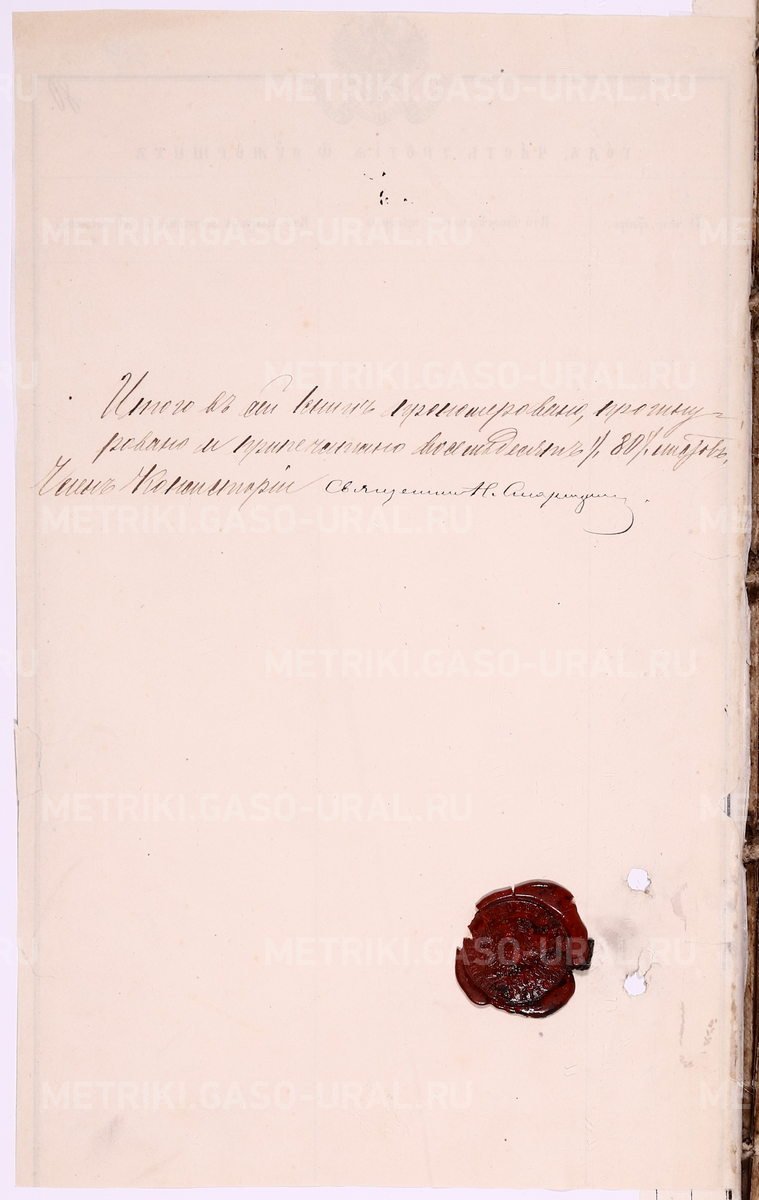 METRIKI.GASO-URAL.RU
METRIKI.GASO-URAL.RU
METRIKI.GASO-URAL.RU
Итого въ сей книгѣ прономеровано, прошну-
ровано и припечатано восемьдесятъ /: 80 :/ листовъ.
Членъ Консисторіи Священникъ
METRIKI.GASO-URAL.RU
METRIKI.GASO-URAL.RU
METRIKI.GASO-URAL.RU
METRIKI.GASO-URAL.RU
METRIKI.GASO-URAL.RU